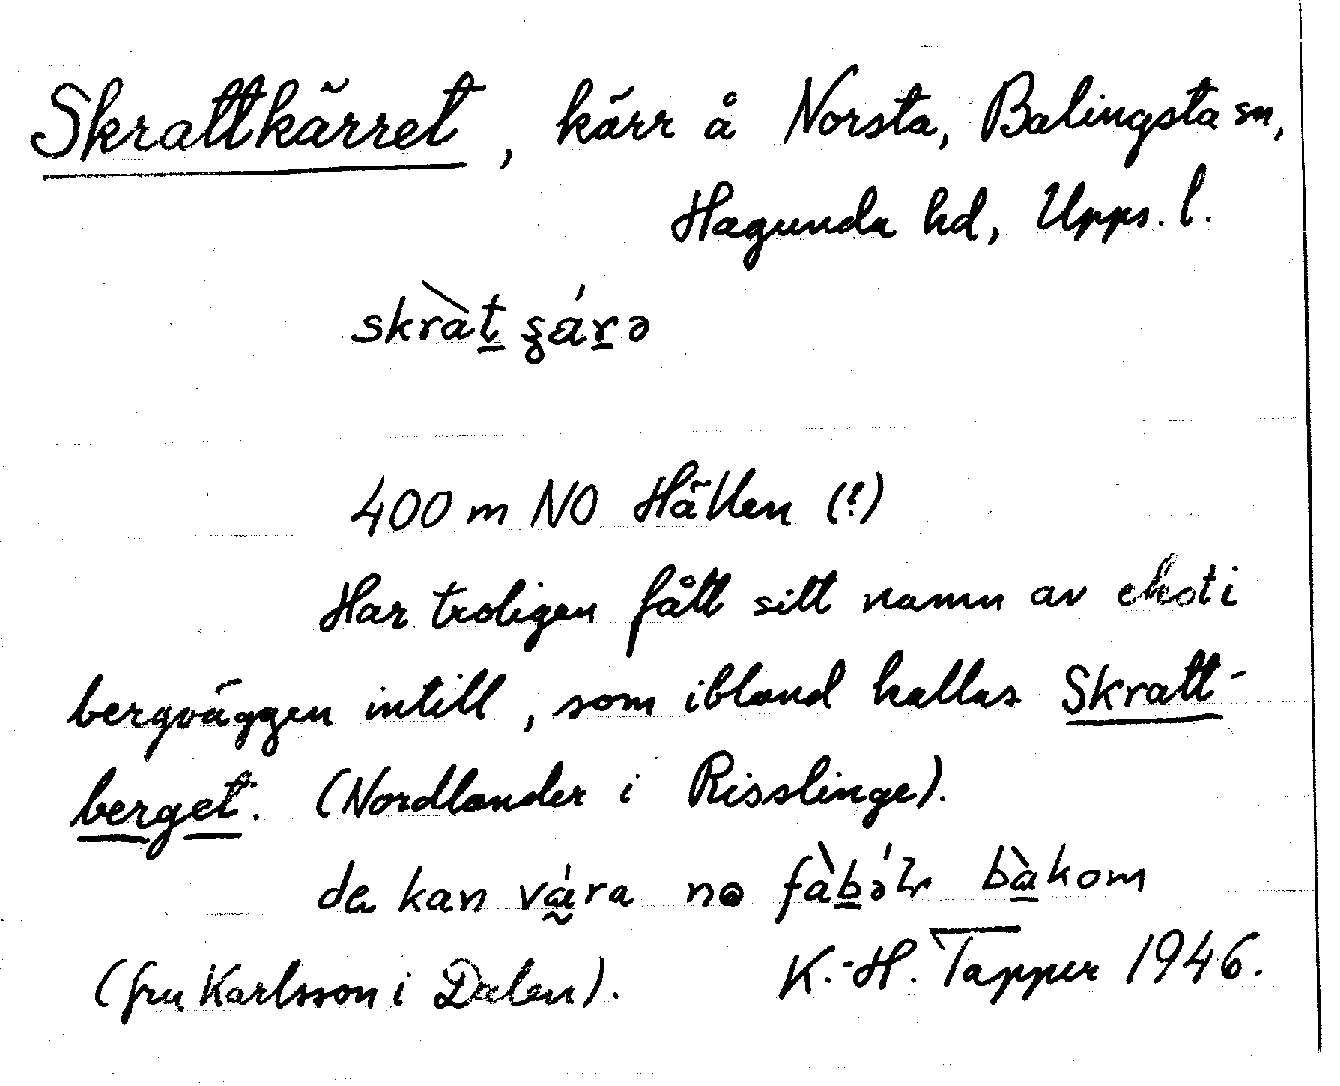 Skrattkärret, kärr å Norsta, Balingsta sn,
Hagunda hd, Upps. l.
400 m NO Hällen (!)
Har troligen fått sitt namn av ekot i
bergväggen intill, som ibland kallas Skratt-
berget. (Nordlander i Risslinge).
de kan vára nə fàbə́l bàkom
(fru Karlsson i Dalen). K.-H. Tapper 1946.